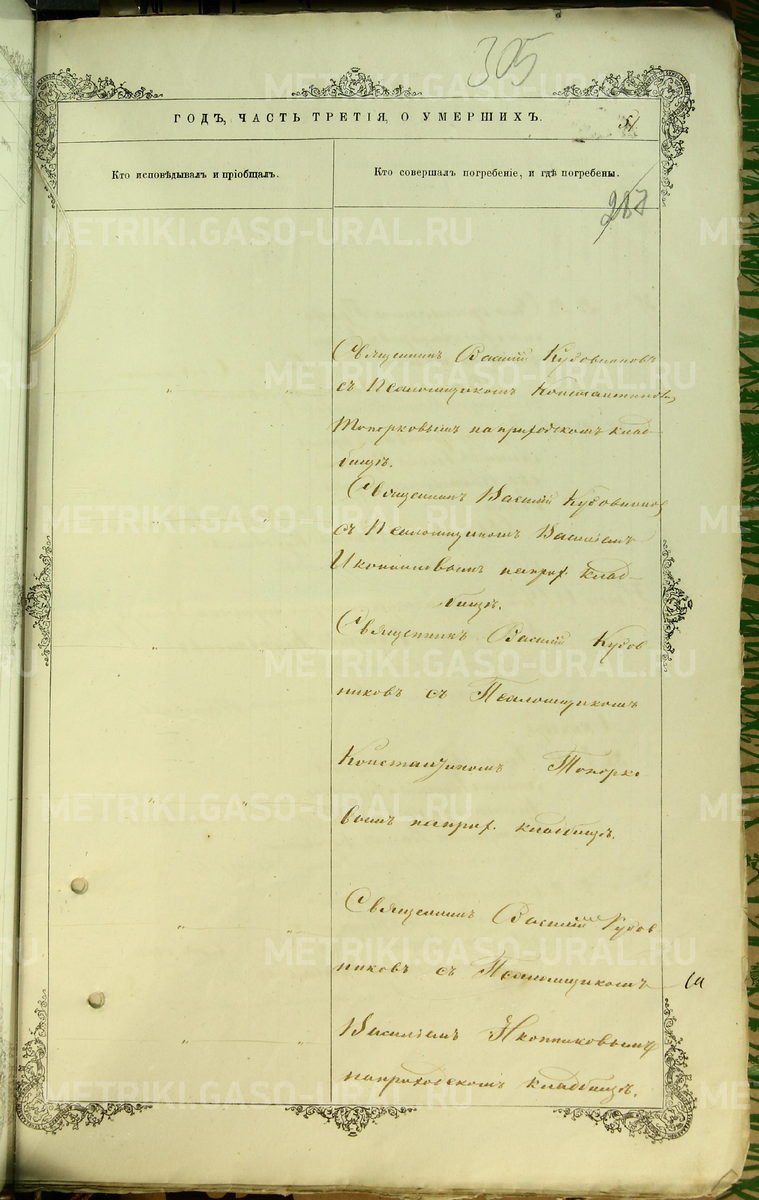 305
ГОДЪ, ЧАСТЬ ТРЕТІЯ, О УМЕРШИХЪ.
Кто исповѣдывалъ и пріобщалъ.
Кто совершалъ погребеніе, и гдѣ погребены.
Священникъ Василій Кудовниковъ
съ Псаломщикомъ Константиномъ
Топорковымъ на приходскомъ клад-
бищѣ.
Священникъ Василій Кудовниковъ
съ Псаломщикомъ Василіемъ
Иконниковымъ на прих. клад-
бищѣ.
Священникъ Василій Кудов
никовъ съ Псаломщикомъ
Константиномъ Топорко
вымъ на прих. кладбищѣ.
Священникъ Василій Кудов
никовъ съ Псаломщикомъ
Василіемъ Иконниковымъ
на приходскомъ кладбищѣ.
METRIKI.GASO-URAL.RU